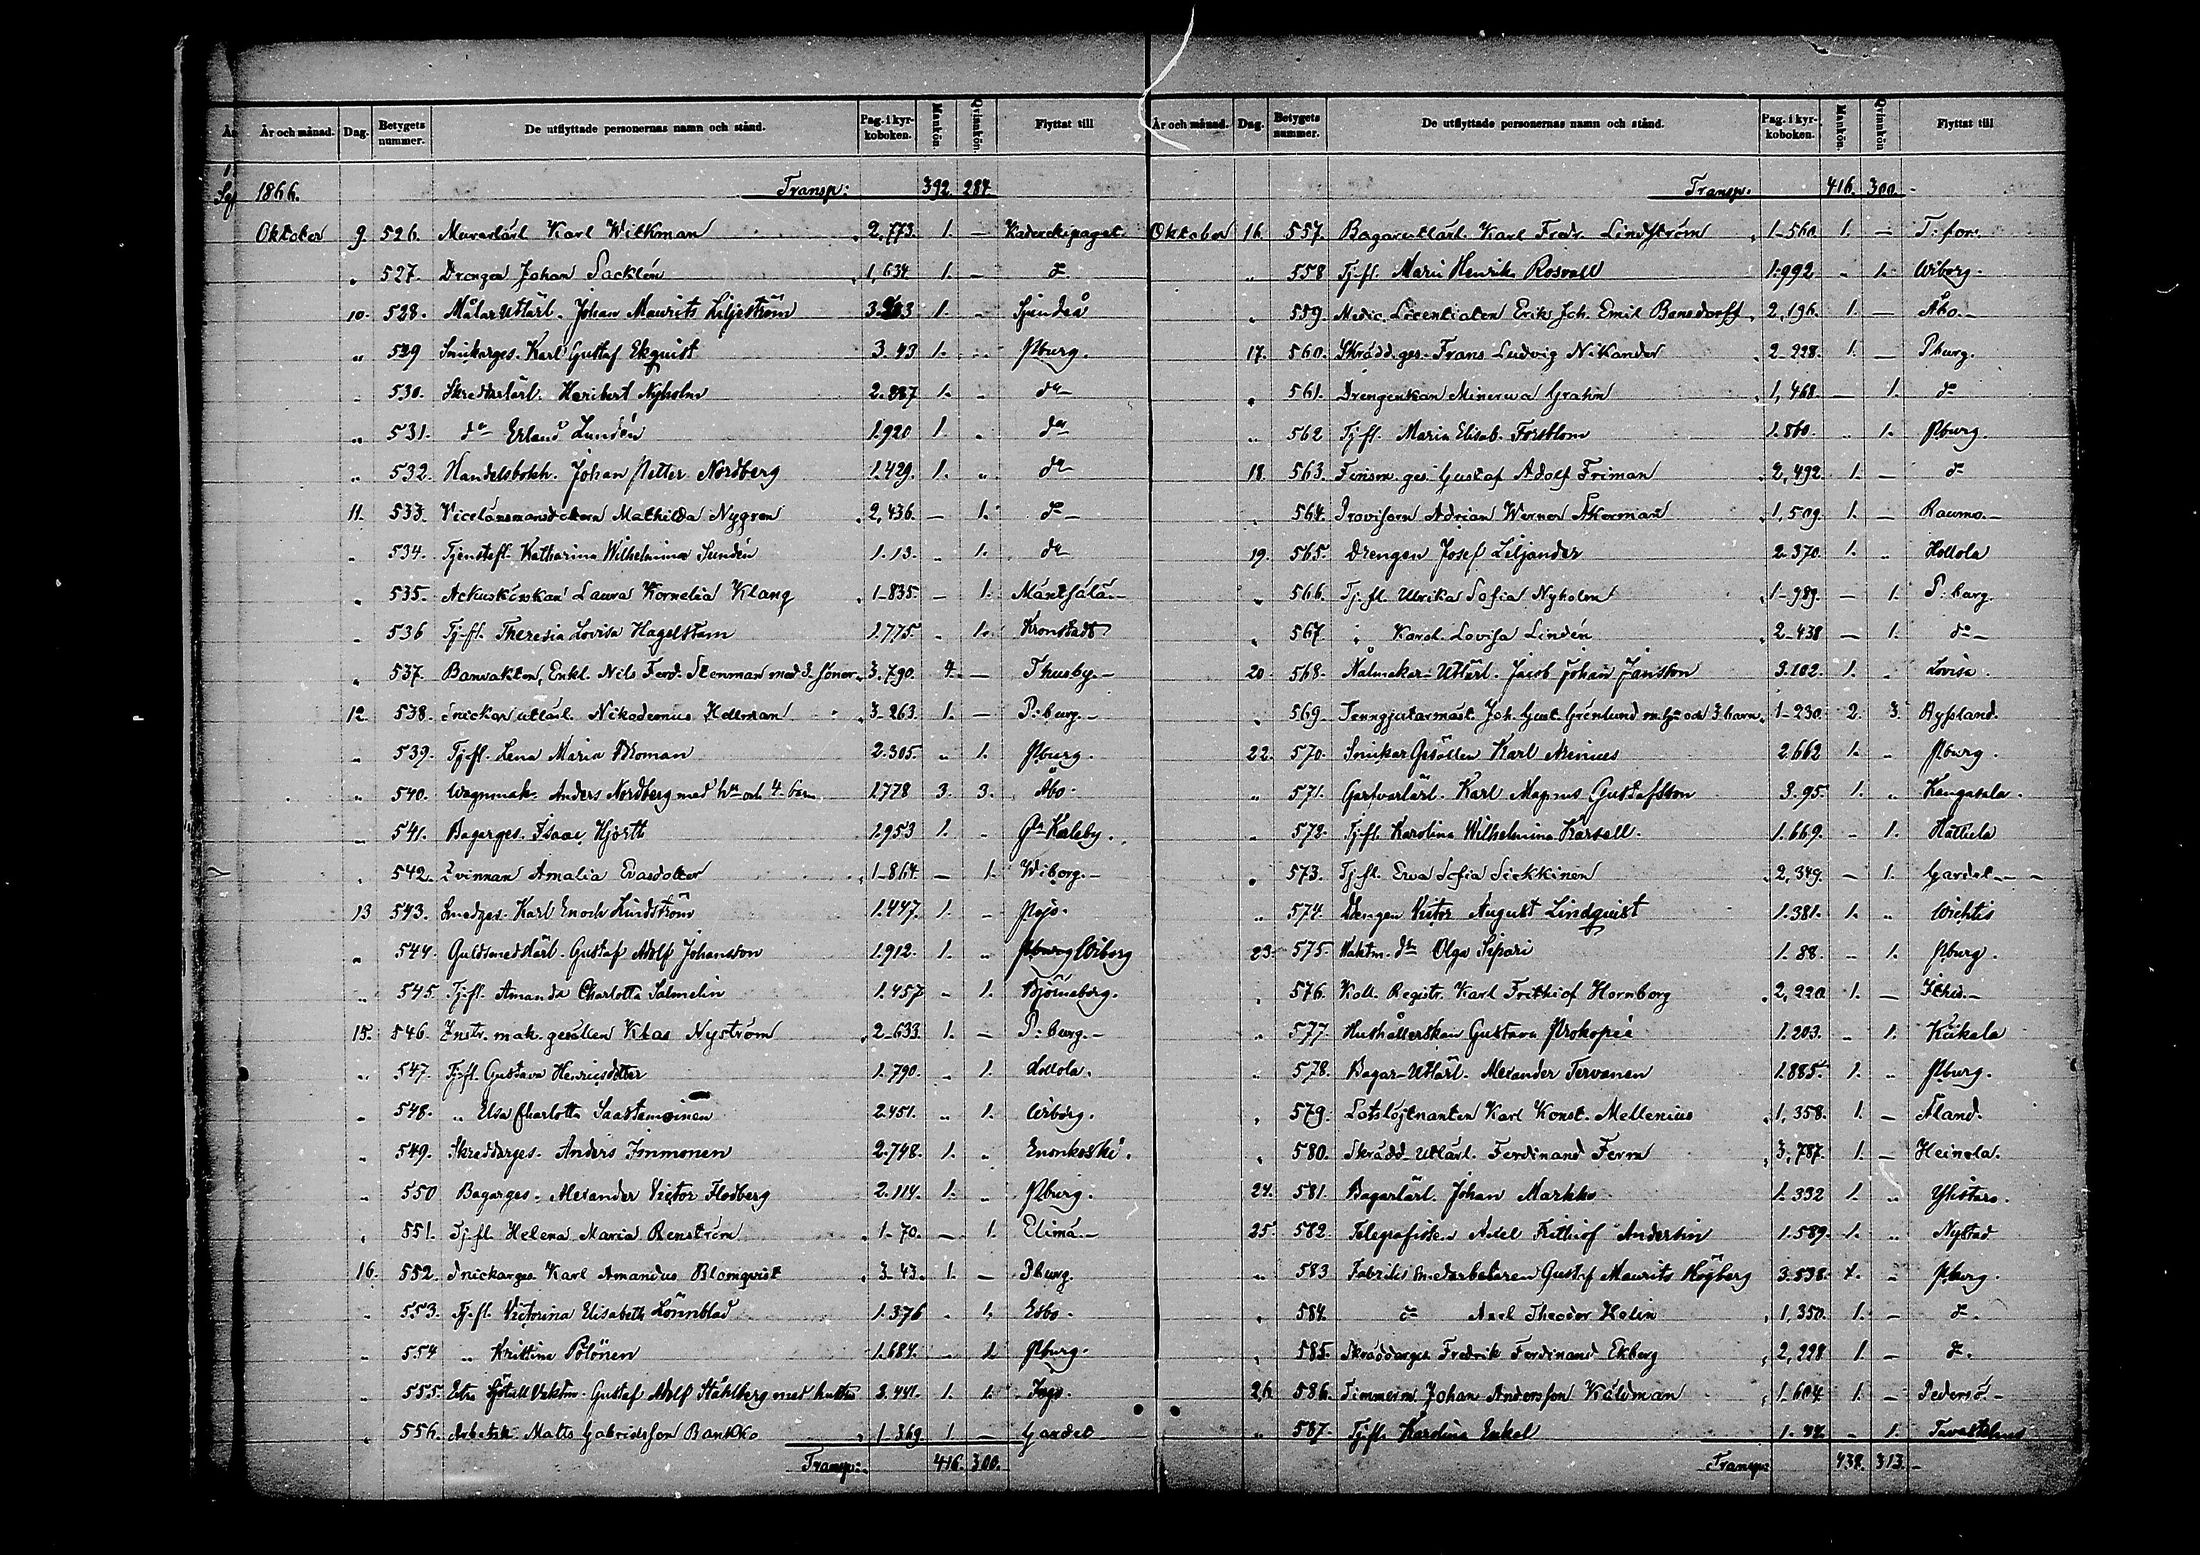 År och månad. Dag. Betygets nummer. De utflyttade personernas namn och stånd. Pag. i kyrkoboken. Mankön. Qvinnkön. Flyttat till
1866. Transp: 392. 284.
Oktober 9. 526. Murarlärl. Karl Wilkman 2,773. 1. —
„ 527. Drengen Johan Sacklén 1,634 1. — do
10. 528. Målar Utlärl. Johan Maurits Liljeström 1. „ Sjundeå
„ 529 Snickarges. Karl Gustaf Ekquist 3.43 1. „ Pburg.
„ 530. Skreddarlärl. Heribert Nyholm 2.887 1. „ do
„ 531. do Erland Lundén 1.920 1. „ do
„ 532. Handelsbokh. Johan Petter Nordberg 1.429. 1. „ do
11. 533. Vicelänsmansdottern Mathilda Nygren 2,436. — 1. do
„ 534. Tjenstefl. Katharina Wilhelmina Sundén 1.13. „ 1. do
„ 535. Ackuskörskan Laura Kornelia Klang 1-835. — 1. Mäntsälä.
„ 536 Tj.fl. Theresia Lovisa Hagelstam 1.775. „ 1. Kronstadt
„ 537. Banvakten, Enkl. Nils Ferd. Stenman med 3 söner 3.790. 4. — Thusby.
12. 538. Snickar utlärl. Nikodemus Hallman 3-263. 1. — P:burg.
„ 539. Tj.fl. Lena Maria Broman 2.305. „ 1. Pburg.
„ 540. Wagnmak. Anders Nordberg med hu och 4 barn 1.778 3. 3. Åbo.
„ 541. Bagarges. Isaac Hjortt 1.953 1. „ Gla Karleby.
„ 542. Qvinnan Amalia Evasdotter 1-864. — 1. Wiborg.
13 543. Smedges. Karl Enoch Lindström 1.447. 1. „ Pojo.
„ 544. Guldsmedslärl. Gustaf Adolf Johansson 1.912. 1. „ Pburg Wiborg
„ 545. Tj.fl. Amanda Charlotta Salmelin 1.457 „ 1. Björneborg.
15. 546. Instr. mak. gesällen Klas Nyström 2-633. 1. — P:burg.
„ 547. Tj.fl. Gustava Henricsdotter 1.790. „ 1. Hollola.
„ 548. „ Ulla Charlotta Saastamoinen 2.451. „ 1. Wiborg.
„ 549. Skreddarges. Anders Immonen 2.748. 1. „ Enonkoski.
„ 550 Bagarges. Alexander Victor Flodberg 2.114. 1. „ Pburg.
„ 551. Tj.fl. Helena Maria Renström 1-70. — 1. Elimä.
16. 552. Snickarges Karl Amandus Blomqvist 3-43. 1. — Pburg.
„ 553. Tj.fl. Victorina Elisabeth Lönnblad 1.376 „ 1. Esbo.
„ 554 „ Kristina Pölönen 1.684. „ 1. Pburg.
„ 555. Extra Vaktm. Gustaf Adolf Ståhlberg med hustru 3.441. 1. 1. Ingo.
„ 556. Arbetsk. Matts Gabrielsson Bankko 1.369 1. — Gardet
Transp: 416. 300.
År och månad. Dag. Betygets nummer. De utflyttade personernas namn och stånd. Pag. i kyrkoboken. Mankön. Qvinnkön Flyttat till
Transp. 416. 300.
Oktober 16. 557. Bagareutlärl. Karl Fredr. Lindström 1-560. 1. — T:fors.
„ 558 Tj.fl. Maria Henrika Rosvall 1.992 „ 1. Wiborg.
„ 559. Medic. Licentiaten Erik Joh. Emil Bonsdorff 2,196. 1. — Åbo.
17. 560. Skrädd.ges. Frans Ludvig Nikander 2-228. 1. — Pburg.
„ 561. Drengenkan Minerwa Grahn 1,468 — 1. do
„ 562 Tj.fl. Maria Elisab. Forsblom 1.860. „ 1. Pburg.
18. 563. ges. Gustaf Adolf Friman 2,492. 1. — do
„ 564. Provisorn Adrian Werner Åkerman 1,509. 1. — Raumo.
19. 565. Drengen Josef Liljander 2.370. 1. „ Hollola
„ 566. Tj.fl. Ulrika Sofia Nyholm 1-989. — 1. P:burg.
„ 567. „ Karol. Lovisa Lindén 2-438 — 1. do
20. 568. Nålmakar-Utlärl. Jacob Johan Jansson 3.102. 1. „ Lovisa.
„ 569. Tenngjutarmäst. Joh. Gust. Grönlund m. hu och 3 barn 1-230. 2. 3. Ryssland.
22. 570. Snickar Gesällen Karl Arenius 2.662 1. „ Pburg.
„ 571. Garfvarlärl. Karl Magnus Gustafsson 3.95. 1. „ Kangasala.
„ 572. Tj.fl. Karolina Wilhelmina Karsell. 1.669. „ 1. Hattula
„ 573. Tj.fl. Eva Sofia Siekkinen 2,349. — 1. Gardet
„ 574. Drengen Victor August Lindquist 1.381. 1. „ Wichtis
23. 575. Vaktm. dtr Olga Sipari 1.88. „ 1. Pburg.
„ 576. Koll. Registr. Karl Frithiof Hornborg 2,220 1. —
„ 577. Hushållerskan Gustava Prokopéé 1.203. „ 1. Kiikala
„ 578. Bagar-Utlärl. Alexander Tervonen 1.885. 1. „ Pburg.
„ 579. Lotslöjtnanten Karl Konst. Mellenius 1,358. 1. — Åland.
„ 580. Skrädd-Utlärl. Ferdinand Ferm 3,787. 1. — Heinola.
24. 581. Bagarlärl. Johan Markko 1.332 1. „ Ylistaro.
25. 582. Telegrafisten Axel Frithiof Andersin 1.589. 1. „ Nystad
„ 583 Fabriks medarbetaren Gustaf Maurits Högberg 3.538. 1. „ Pburg.
„ 584. do Axel Theodor Helin 1,350. 1. — do.
„ 585. Skräddarges. Fredrik Ferdinand Ekberg 2,228 1. — do.
26. 586. Timmerm. Johan Andersson Käldman 1-604 1. — Pedersö.
„ 587. Tj.fl. Karolina Enkel „ 1. Tavastehus
Transp: 438. 313.